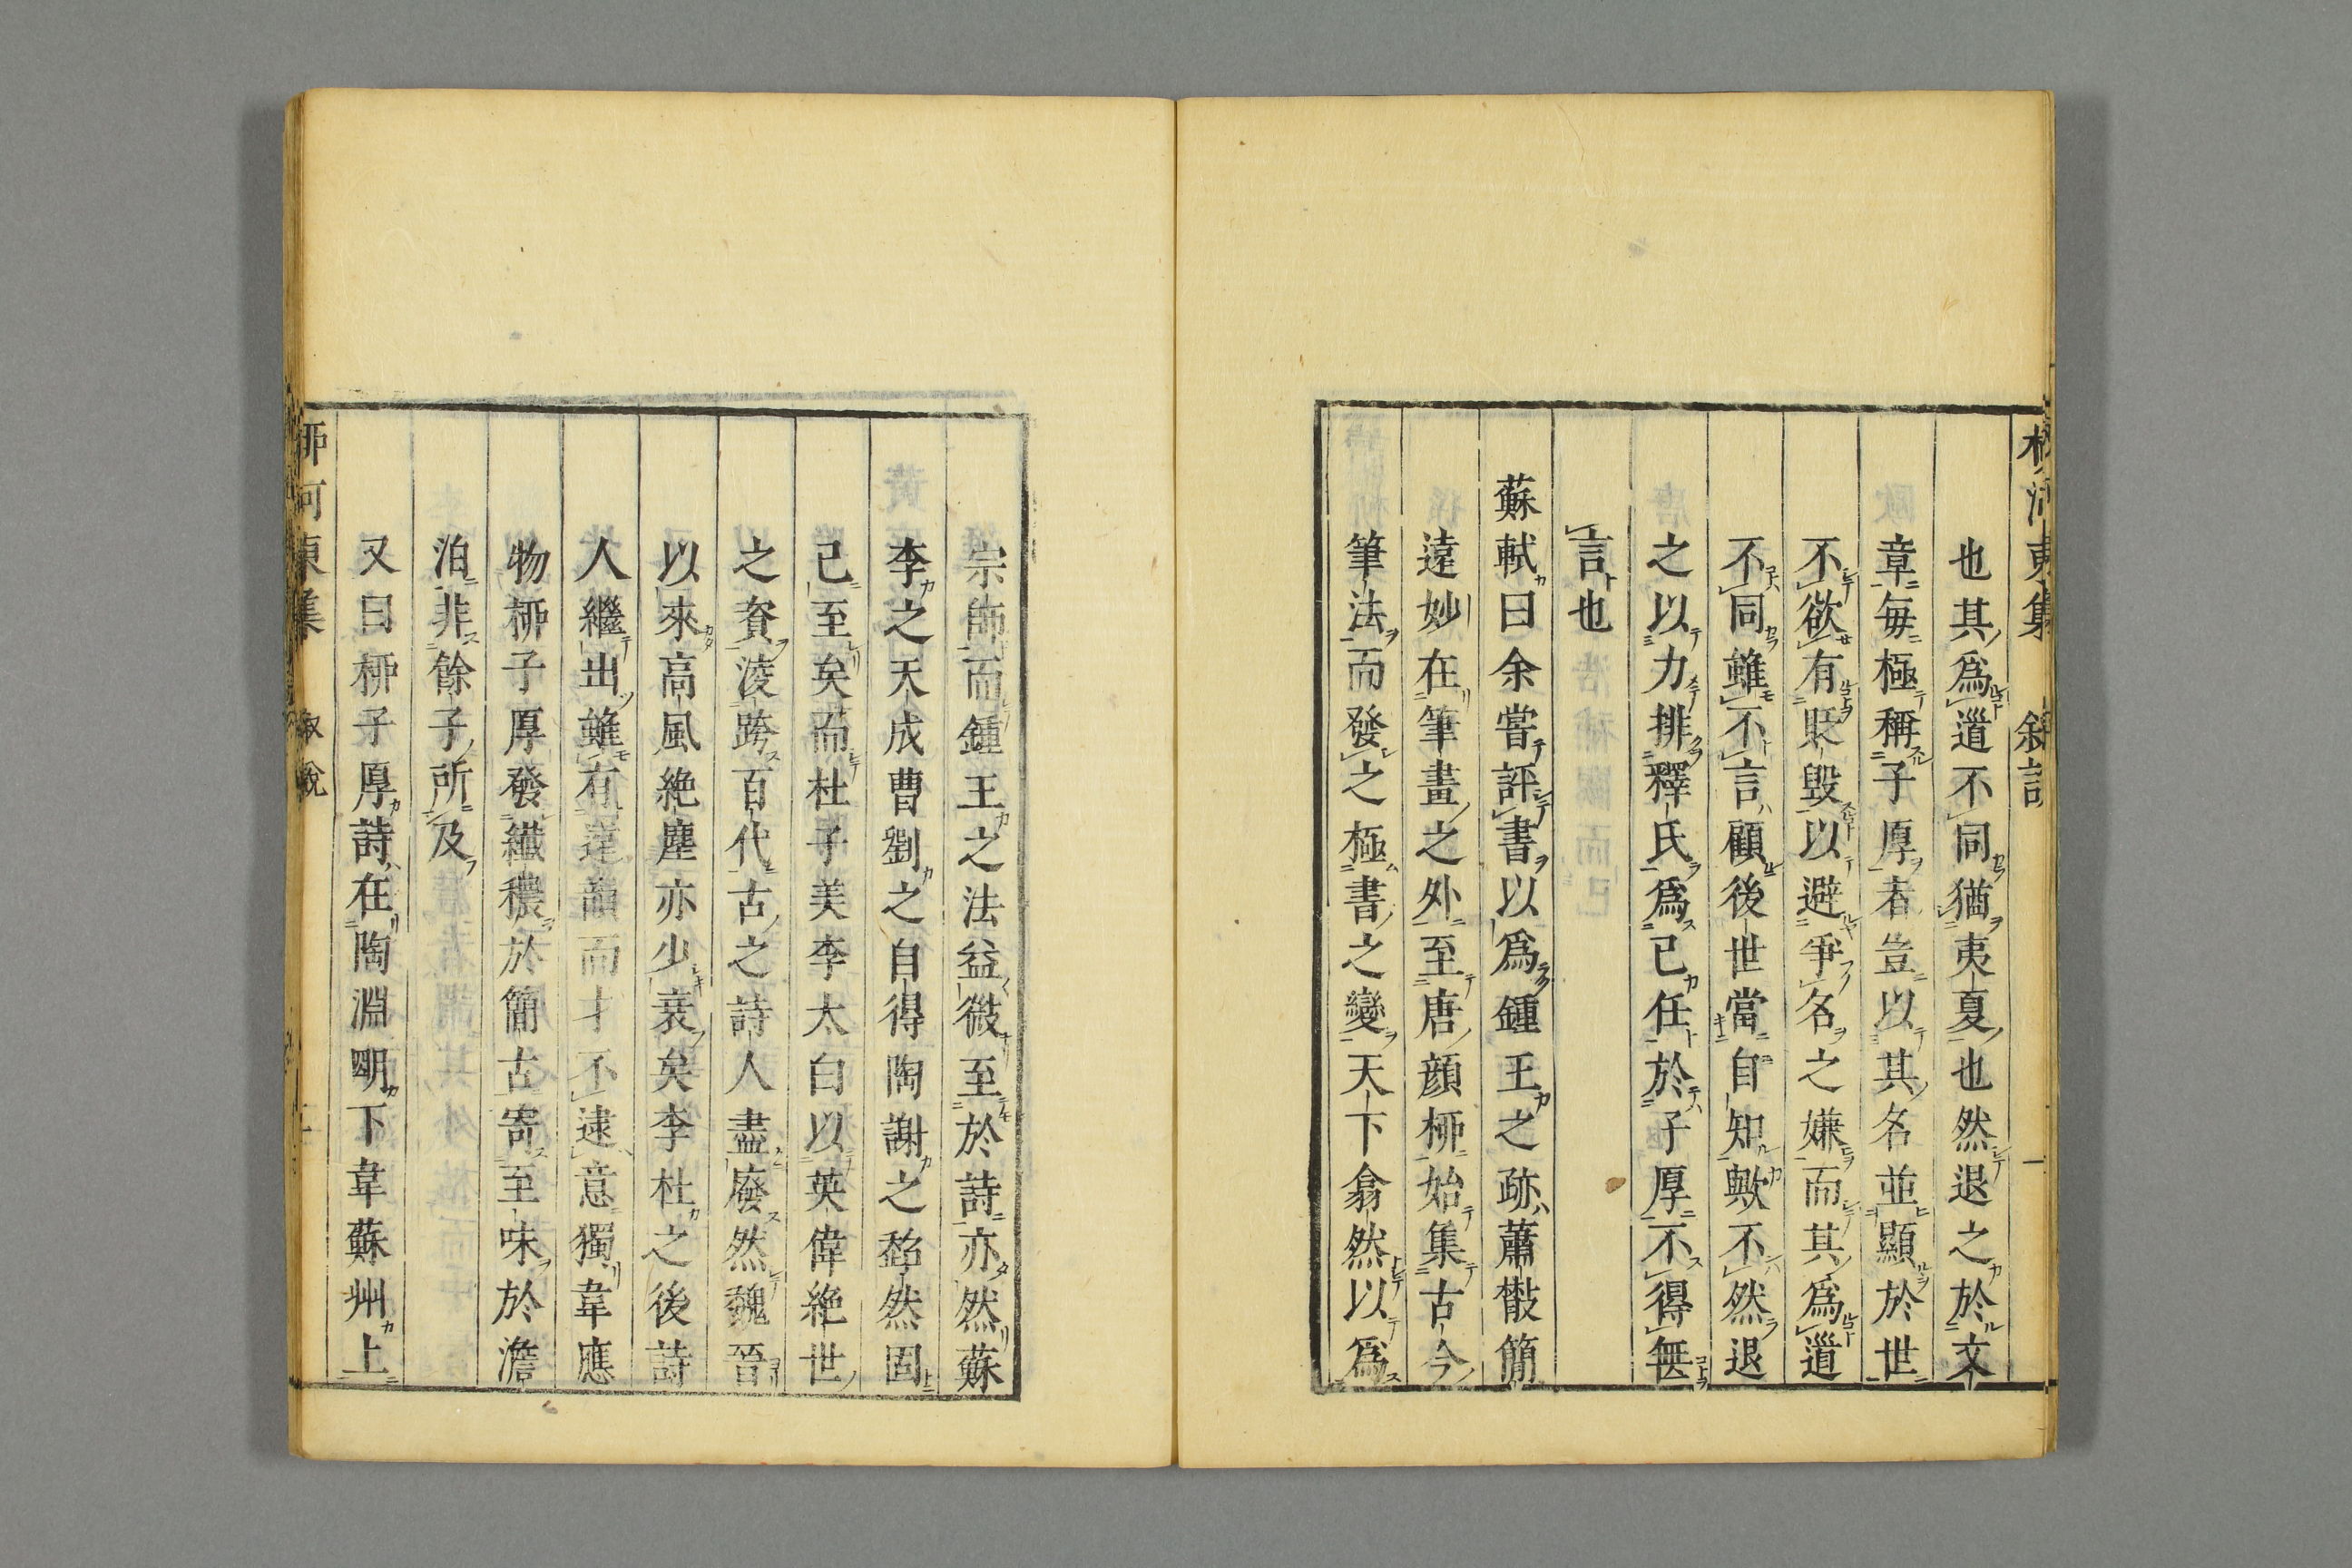 柳河東集 敘說 一
也其爲道不同猶夷夏也然退之於文
章毎極稱子厚者豈以其名並顯於世
不欲有貶毀以避爭名之嫌而其爲道
不同雖不言顧後世當自知歟不然退
之以力排釋氏爲已任於子厚不得無
言也
蘇軾曰余嘗評書以爲鍾王之跡蕭散簡
遠妙在筆畫之外至唐顔柳始集古今
筆法而發之極書之變天下翕然以爲
宗師而鍾王之法益微至於詩亦然蘇
李之天成曹劉之自得陶謝之超然固
已至矣而杜子美李太白以英偉絶世
之資淩跨百代古之詩人盡廢然魏晉
以來高風絶塵亦少衰矣李杜之後詩
人繼出雖有遠韻而才不逮意獨韋應
物柳子厚發纖穠於簡古寄至味於澹
泊非餘子所及
又曰柳子厚詩在陶淵明下韋蘇州上
柳河東集 敘說